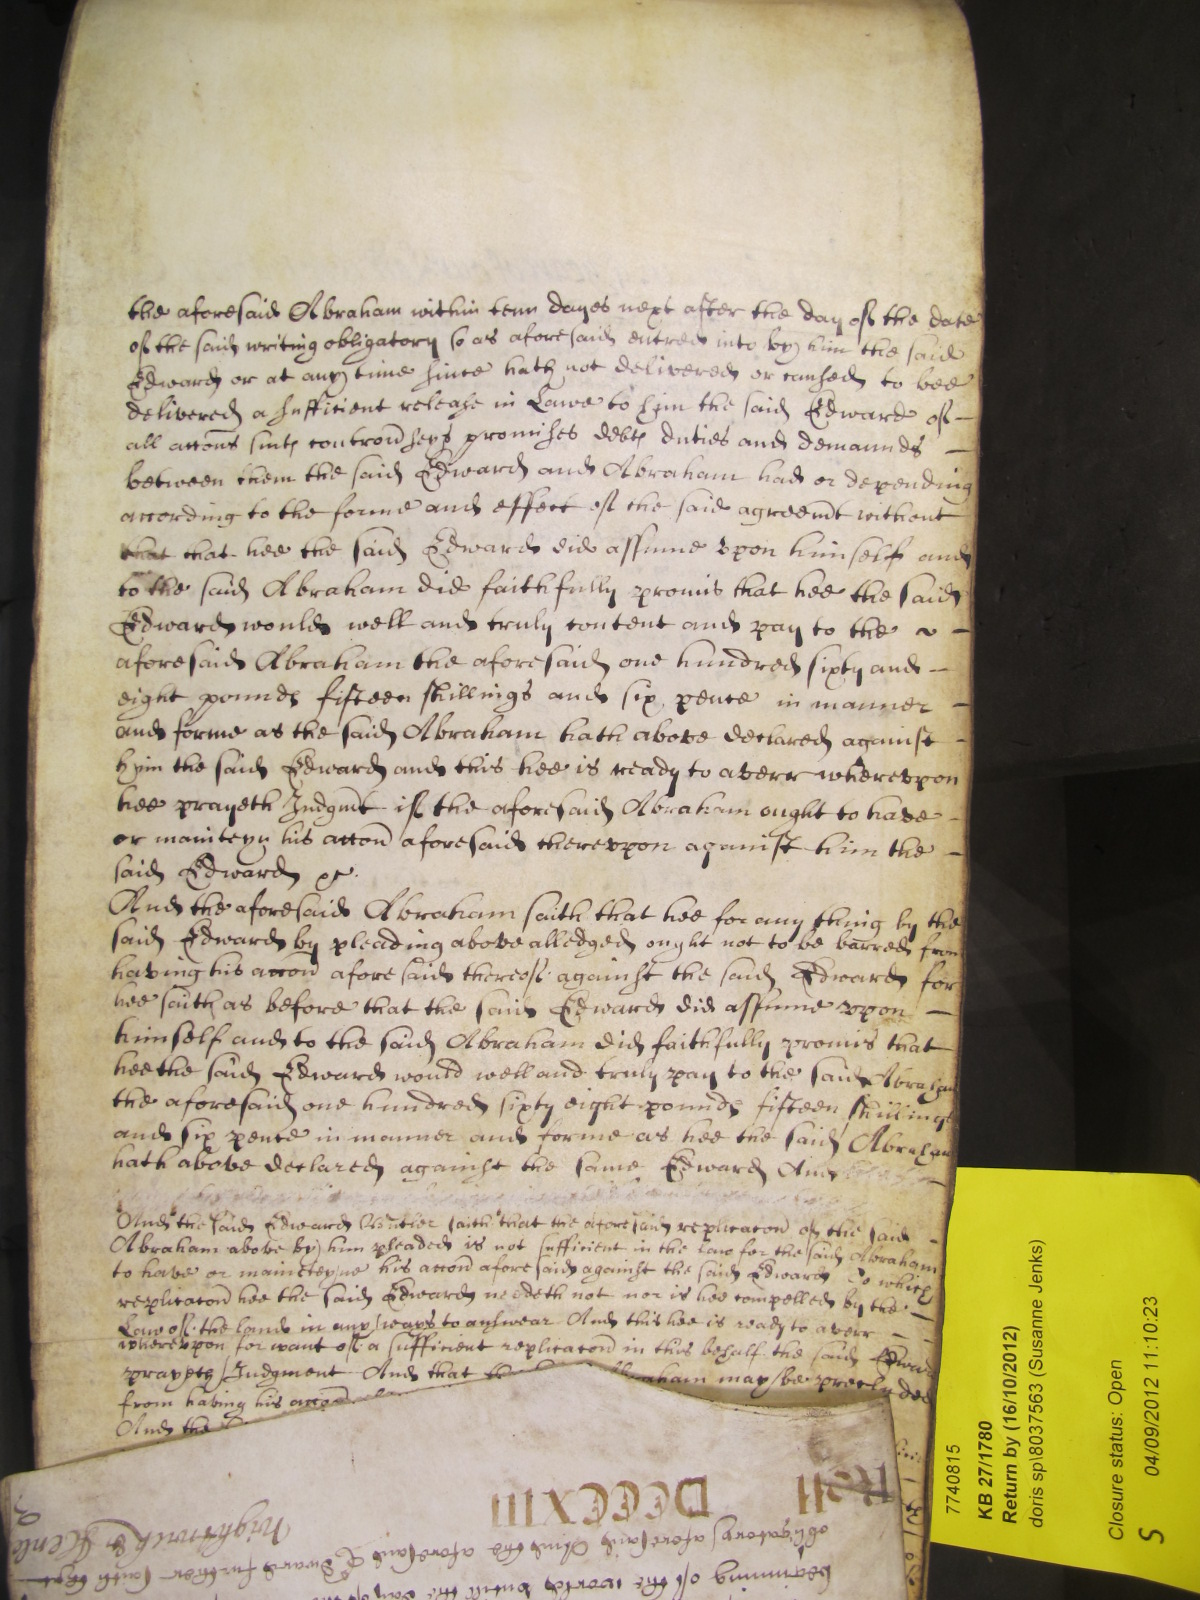 the aforesaid Abraham within tenn dayes next after the day of the date
of the said writing obligatory so as aforesaid entred into by him the said
Edward or at any time since hath not delivered or caused to bee
delivered a sufficient release in Lawe to him the said Edward of
all accons suits promises debts duties and demaunds
between them the said Edward and Abraham had or depending
according to the forme and effect of the said agreemt without
that that hee the said Edward did assume upon himself and
to the said Abraham did faithfully promis that hee the said
Edward would well and truly content and pay to the
aforesaid Abraham the aforesaid one hundred sixty and
eight pounds fifteen shillings and six pence in manner
and forme as the said Abraham hath above declared against
hym the said Edward and this hee is ready to averr whereupon
hee prayeth Judgmt if the aforesaid Abraham ought to have
or mainteyn his accon aforesaid thereupon against him the
said Edward &c.
And the aforesaid Abraham saith that hee for any thing by the
said Edward by pleading above alledged ought not to be barred from
having his accon aforesaid thereof against the said Edward for
hee saith as before that the said Edward did assume upon
himself and to the said Abraham did faithfully promis that
hee the said Edward would well and truly pay to the said Abraham
the aforesaid one hundred sixty eight pounds fifteen shillings
and six pence in manner and forme as hee the said Abraham
hath above declared against the same Edward And
And the said Edward saith that the aforesaid replicacon of the said
Abraham above by him pleaded is not sufficient in the law for the said Abraham
to have or mainteyne his accon aforesaid against the said Edward To which
replicacon hee the said Edward needeth not nor is hee compelled by the
Law of the land in any wayes to answear And this hee is ready to averr
whereupon for want of a sufficient replicacon in this behalf the said Edward
prayeth Judgment And that the Abraham may be
from having his accon
And the
Roll DCCCXIII
obligatory aforesaid And the aforesaid Edward further saith that
beginning of the world untill the
7740815
KB 27/1780
Return by (16/10/2012)
doris sp\8037563 (Susanne Jenks)
Closure status: Open
04/09/2012 11:10:23
S